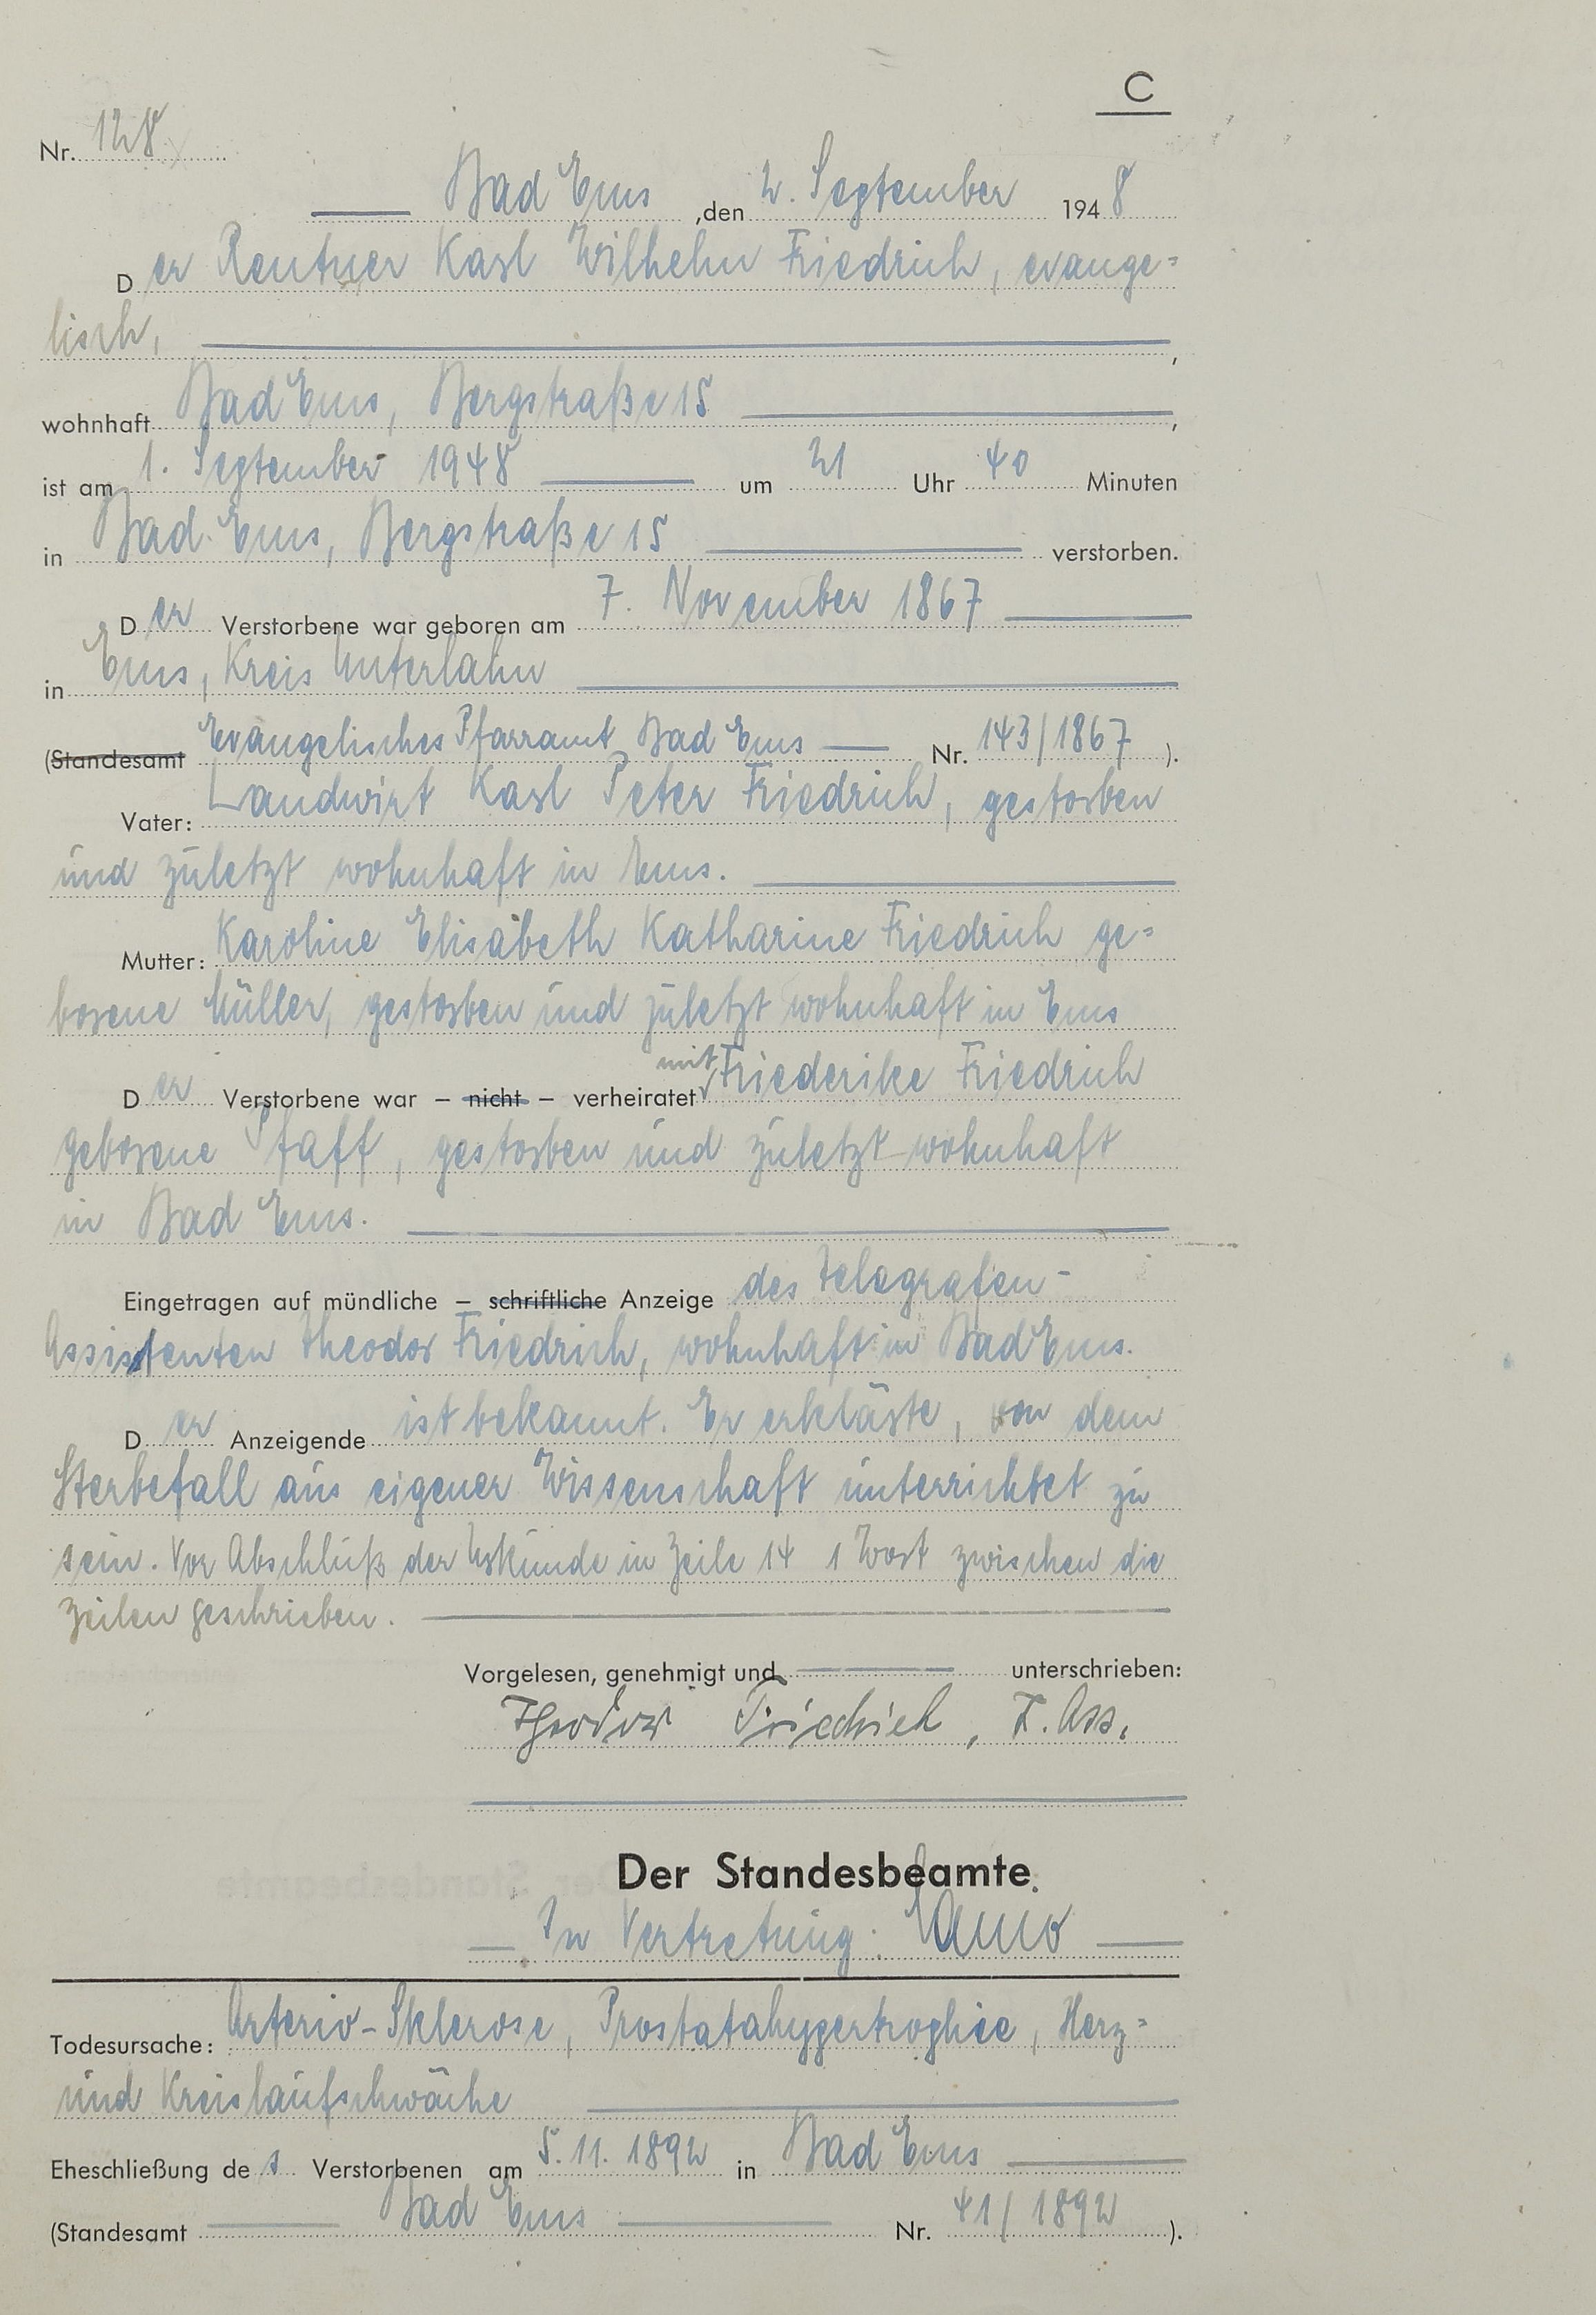 C
Nr. 128
Bad Ems, den 2. September 1948
Der Rentner Karl Wilhelm Friedrich, evange=
lisch,
wohnhaft Bad Ems, Bergstraße 15,
ist am 1. September 1948 um 21 Uhr 40 Minuten
in Bad Ems, Bergstraße 15 verstorben.
Der Verstorbene war geboren am 7. November 1867
in Ems, Kreis Unterlahn
(Standesamt Evangelisches Pfarramt Bad Ems Nr. 143/1867).
Vater: Landwirt Karl Peter Friedrich, gestorben
und zuletzt wohnhaft in Ems.
Mutter: Karoline Elisabeth Katharine Friedrich ge=
borene Müller, gestorben und zuletzt wohnhaft in Ems
Der Verstorbene war – nicht – verheiratet mit Friederike Friedrich
geborene Pfaff, gestorben und zuletzt wohnhaft
in Bad Ems.
Eingetragen auf mündliche – schriftliche Anzeige des Telegrafen-
Assistenten Theodor Friedrich, wohnhaft in Bad Ems.
Der Anzeigende ist bekannt. Er erklärte, von dem
Sterbefall aus eigener Wissenschaft unterrichtet zu
sein. Vor Abschluß der Urkunde in Zeile 14 1 Wort zwischen die
Zeilen geschrieben.
Vorgelesen, genehmigt und unterschrieben:
Theodor Friedrich, T. Ass.
Der Standesbeamte
In Vertretung:
Todesursache: Arterio-Sklerose, Prostatahypertrophie, Herz=
und Kreislaufschwäche
Eheschließung des Verstorbenen am 5.11.1892 in Bad Ems
(Standesamt Bad Ems Nr. 41/1892).